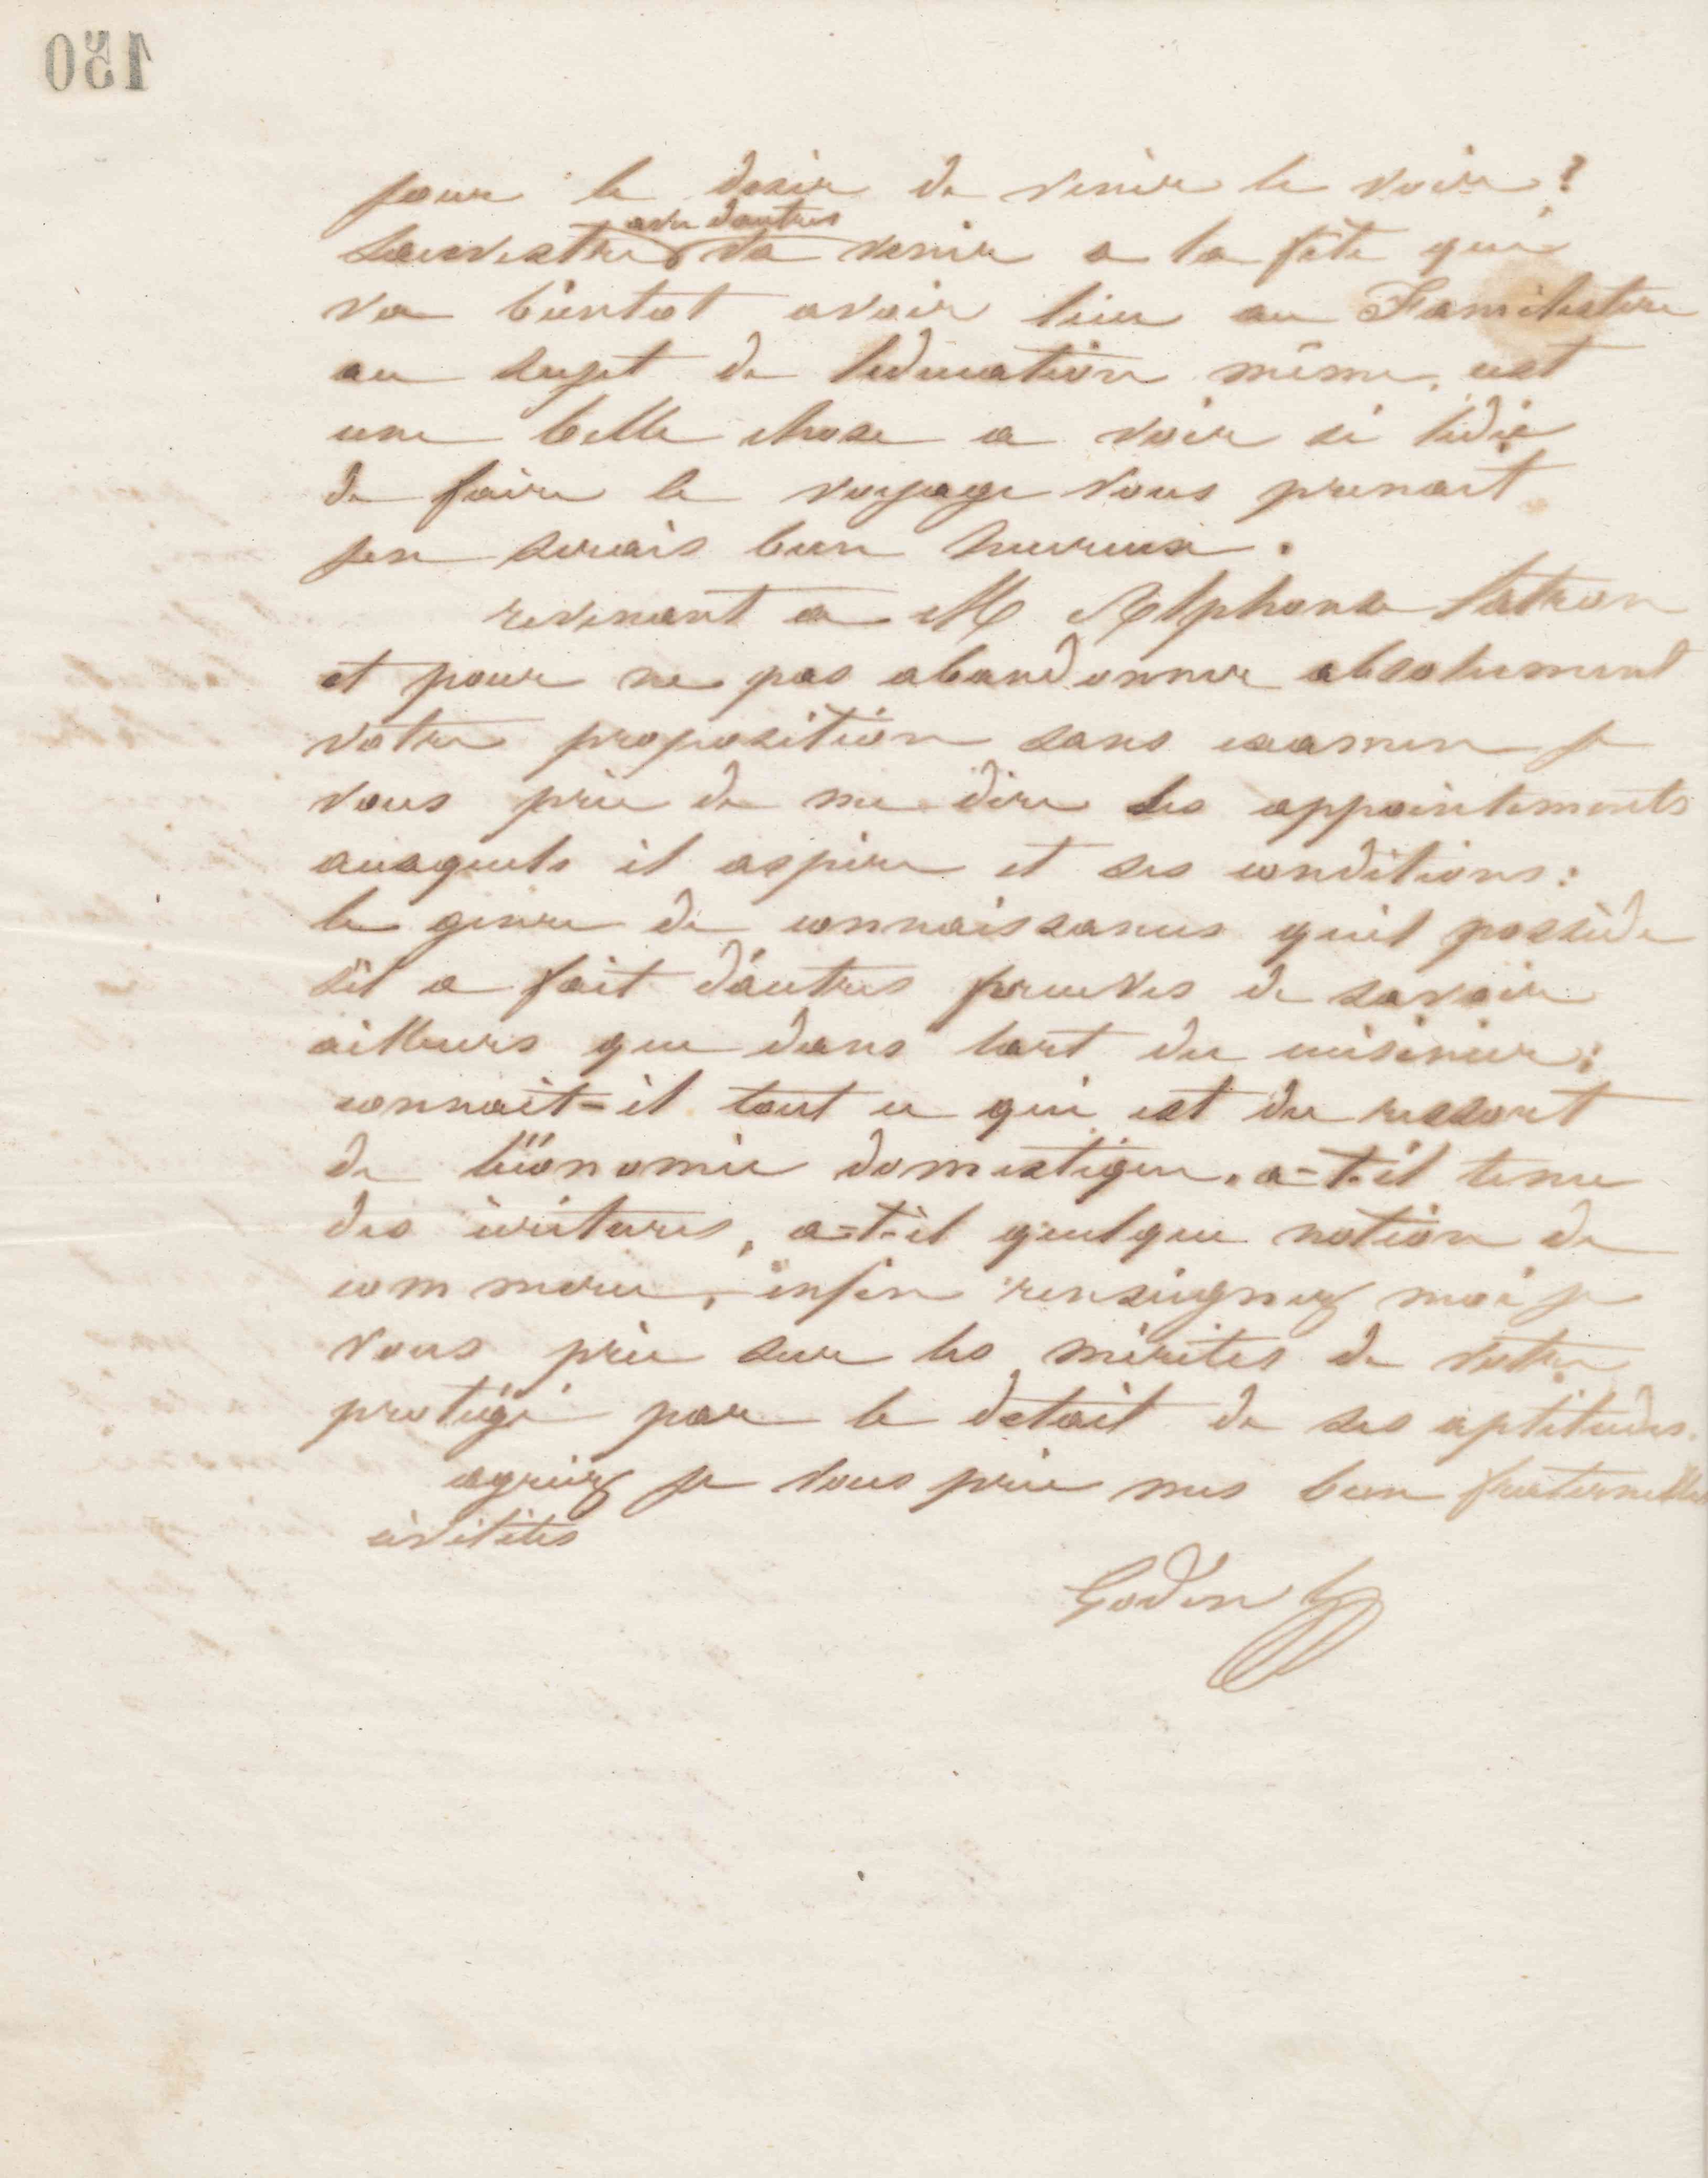 150
pour le desir de venir le voir ?
avec dautres
Sauvestre va venir a la fête qui
va bientot avoir lieu au Familistère
au sujet de leducation même, cest
une belle chose a voir si lidée
de faire le voyage vous prenait
jen serais bien heureux.
revenant a M Alphonse Latron
et pour ne pas abandonner absolument
votre proposition sans examen je
vous prie de me dire les appointements
auxquels il aspire et ses conditions :
le genre de connaissances quil possède
s'il a fait d'autres preuves de savoir
ailleurs que dans lart du cuisinier ;
connait-il tout ce qui est du ressort
de léconomie domestique, a-t-il tenu
des écritures, a-t-il quelque notion de
commerce, enfin renseignez moi je
vous prie sur les mérites de votre
protégé par le detail de ses aptitudes.
agréez je vous prie mes bien fraternelles
civilités
Godin